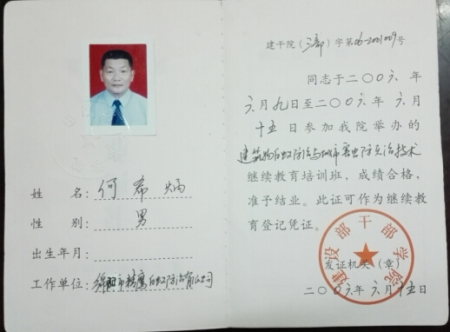 姓名: 何希炳
性别: 男
出生年月:
工作单位: 绵阳市 白蚁防治有限公司
建干院( )字第 号
同志于二〇〇六年
六月九日至二〇〇六年六月
十五日参加我院举办的
建筑物白蚁防治与城市害虫防治技术
继续教育培训班,成绩合格,
准予结业。此证可作为继续教
育登记凭证。
建设部干部学院
发证机关(章)
二〇〇六年六月十五日